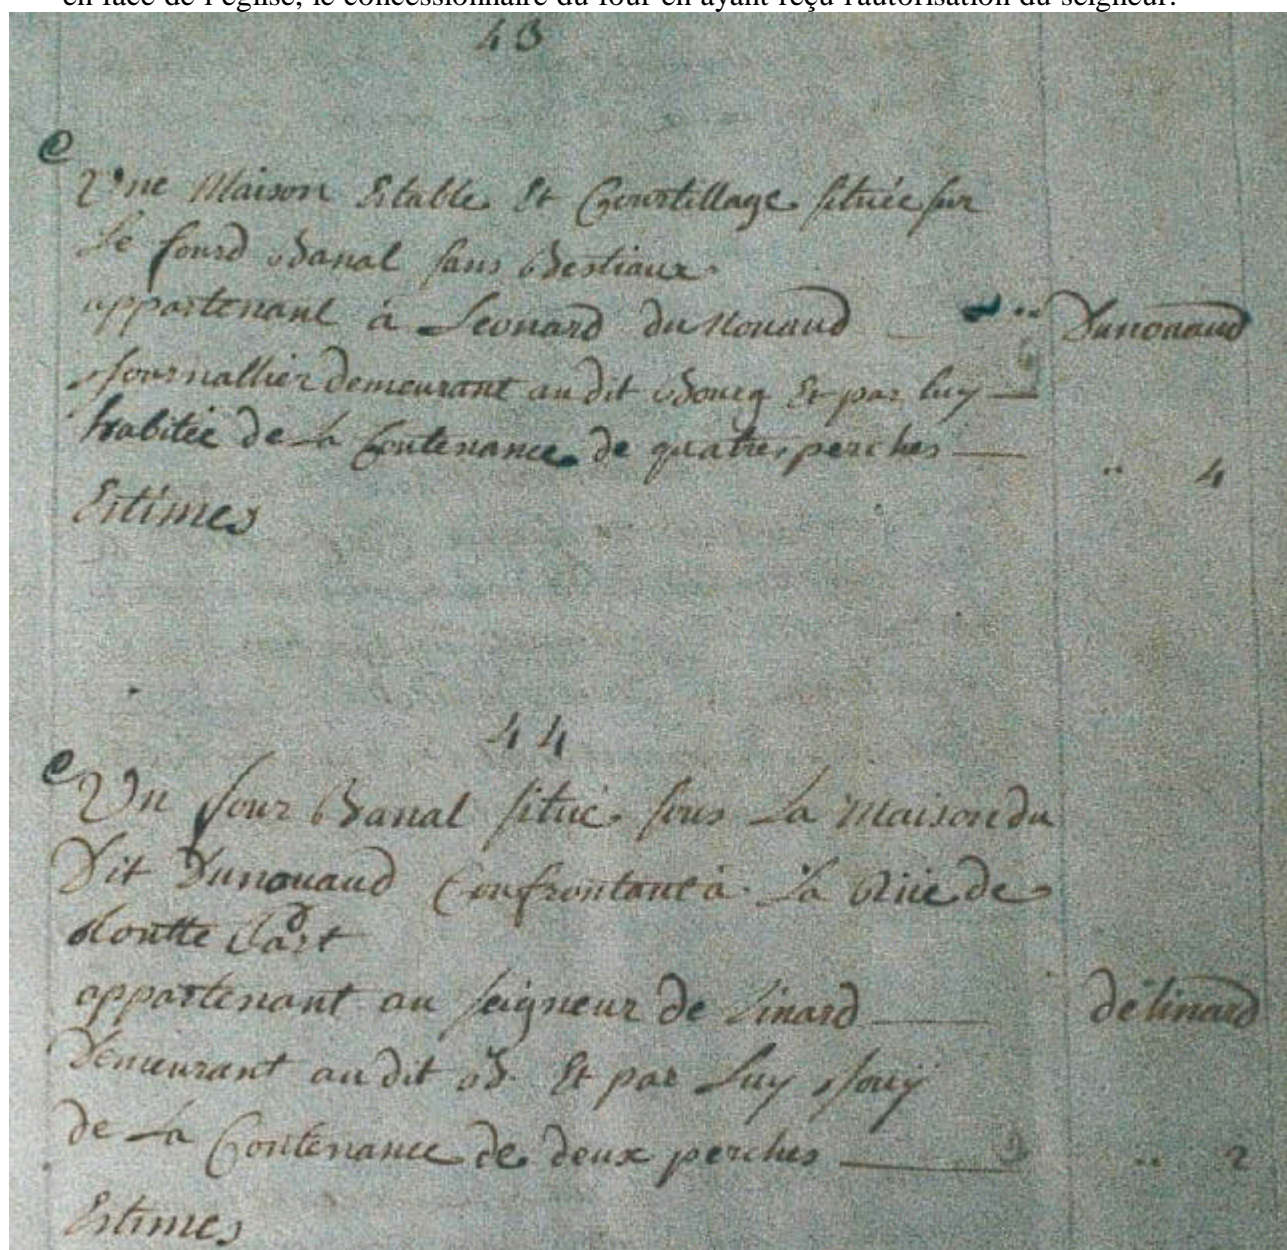 en face de l'église, le concessionnaire du four en ayant reçu l'autorisation du seigneur.
43
Une Maison Estable Et Courtillage située sur
Le fourd Banal sans Bestiaux
appartenant à Leonard duNouaud Dunouaud
Journallier demeurant audit Bourg Et par luy
habitée de La Contenance de quatre perches .. 4
Estimés
44
Un four Banal situé sous La Maison du
Dit Dunouaud Confrontant à La Rüe de
appartenant au seigneur de Linard délinard
Demeurant audit Et par Luy Jouÿ
de La Contenance de deux perches .. 2
Estimés